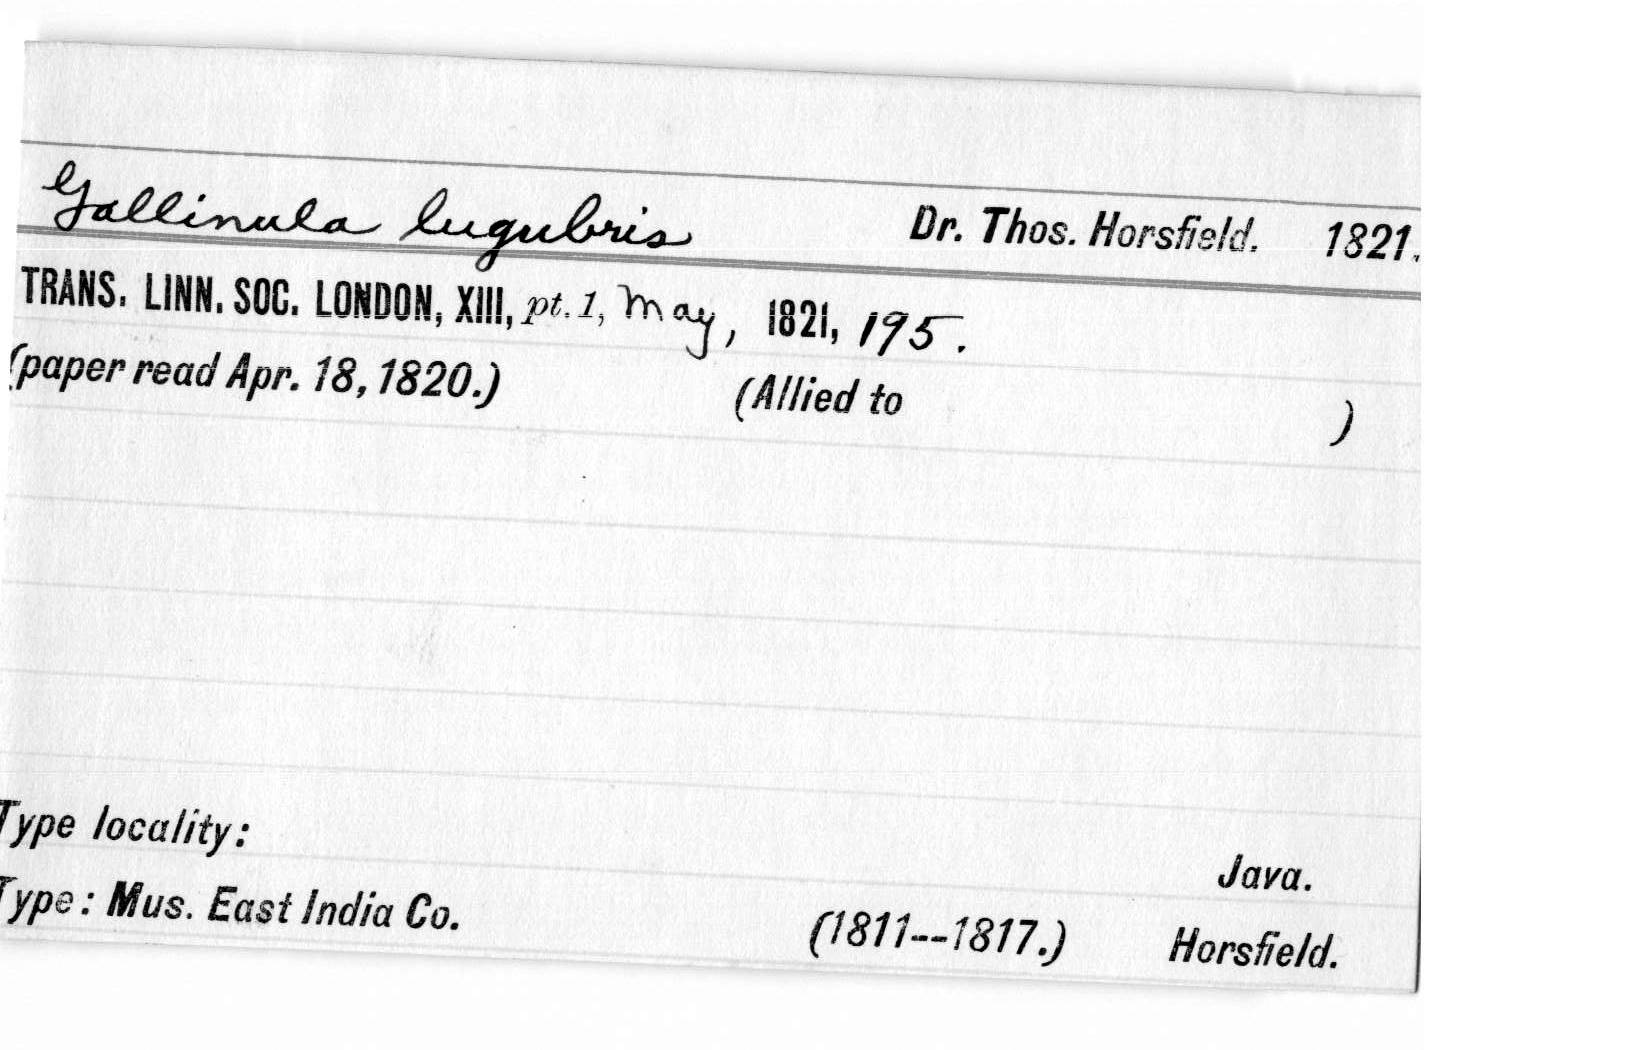 Gallinula lugubris Dr. Thos. Horsfield. 1821.
TRANS. LINN. SOC. LONDON, XIII, pt. 1, May, 1821, 195.
(paper read Apr. 18, 1820.) (Allied to )
Type locality: Java.
Type: Mus. East India Co. (1811--1817.) Horsfield.